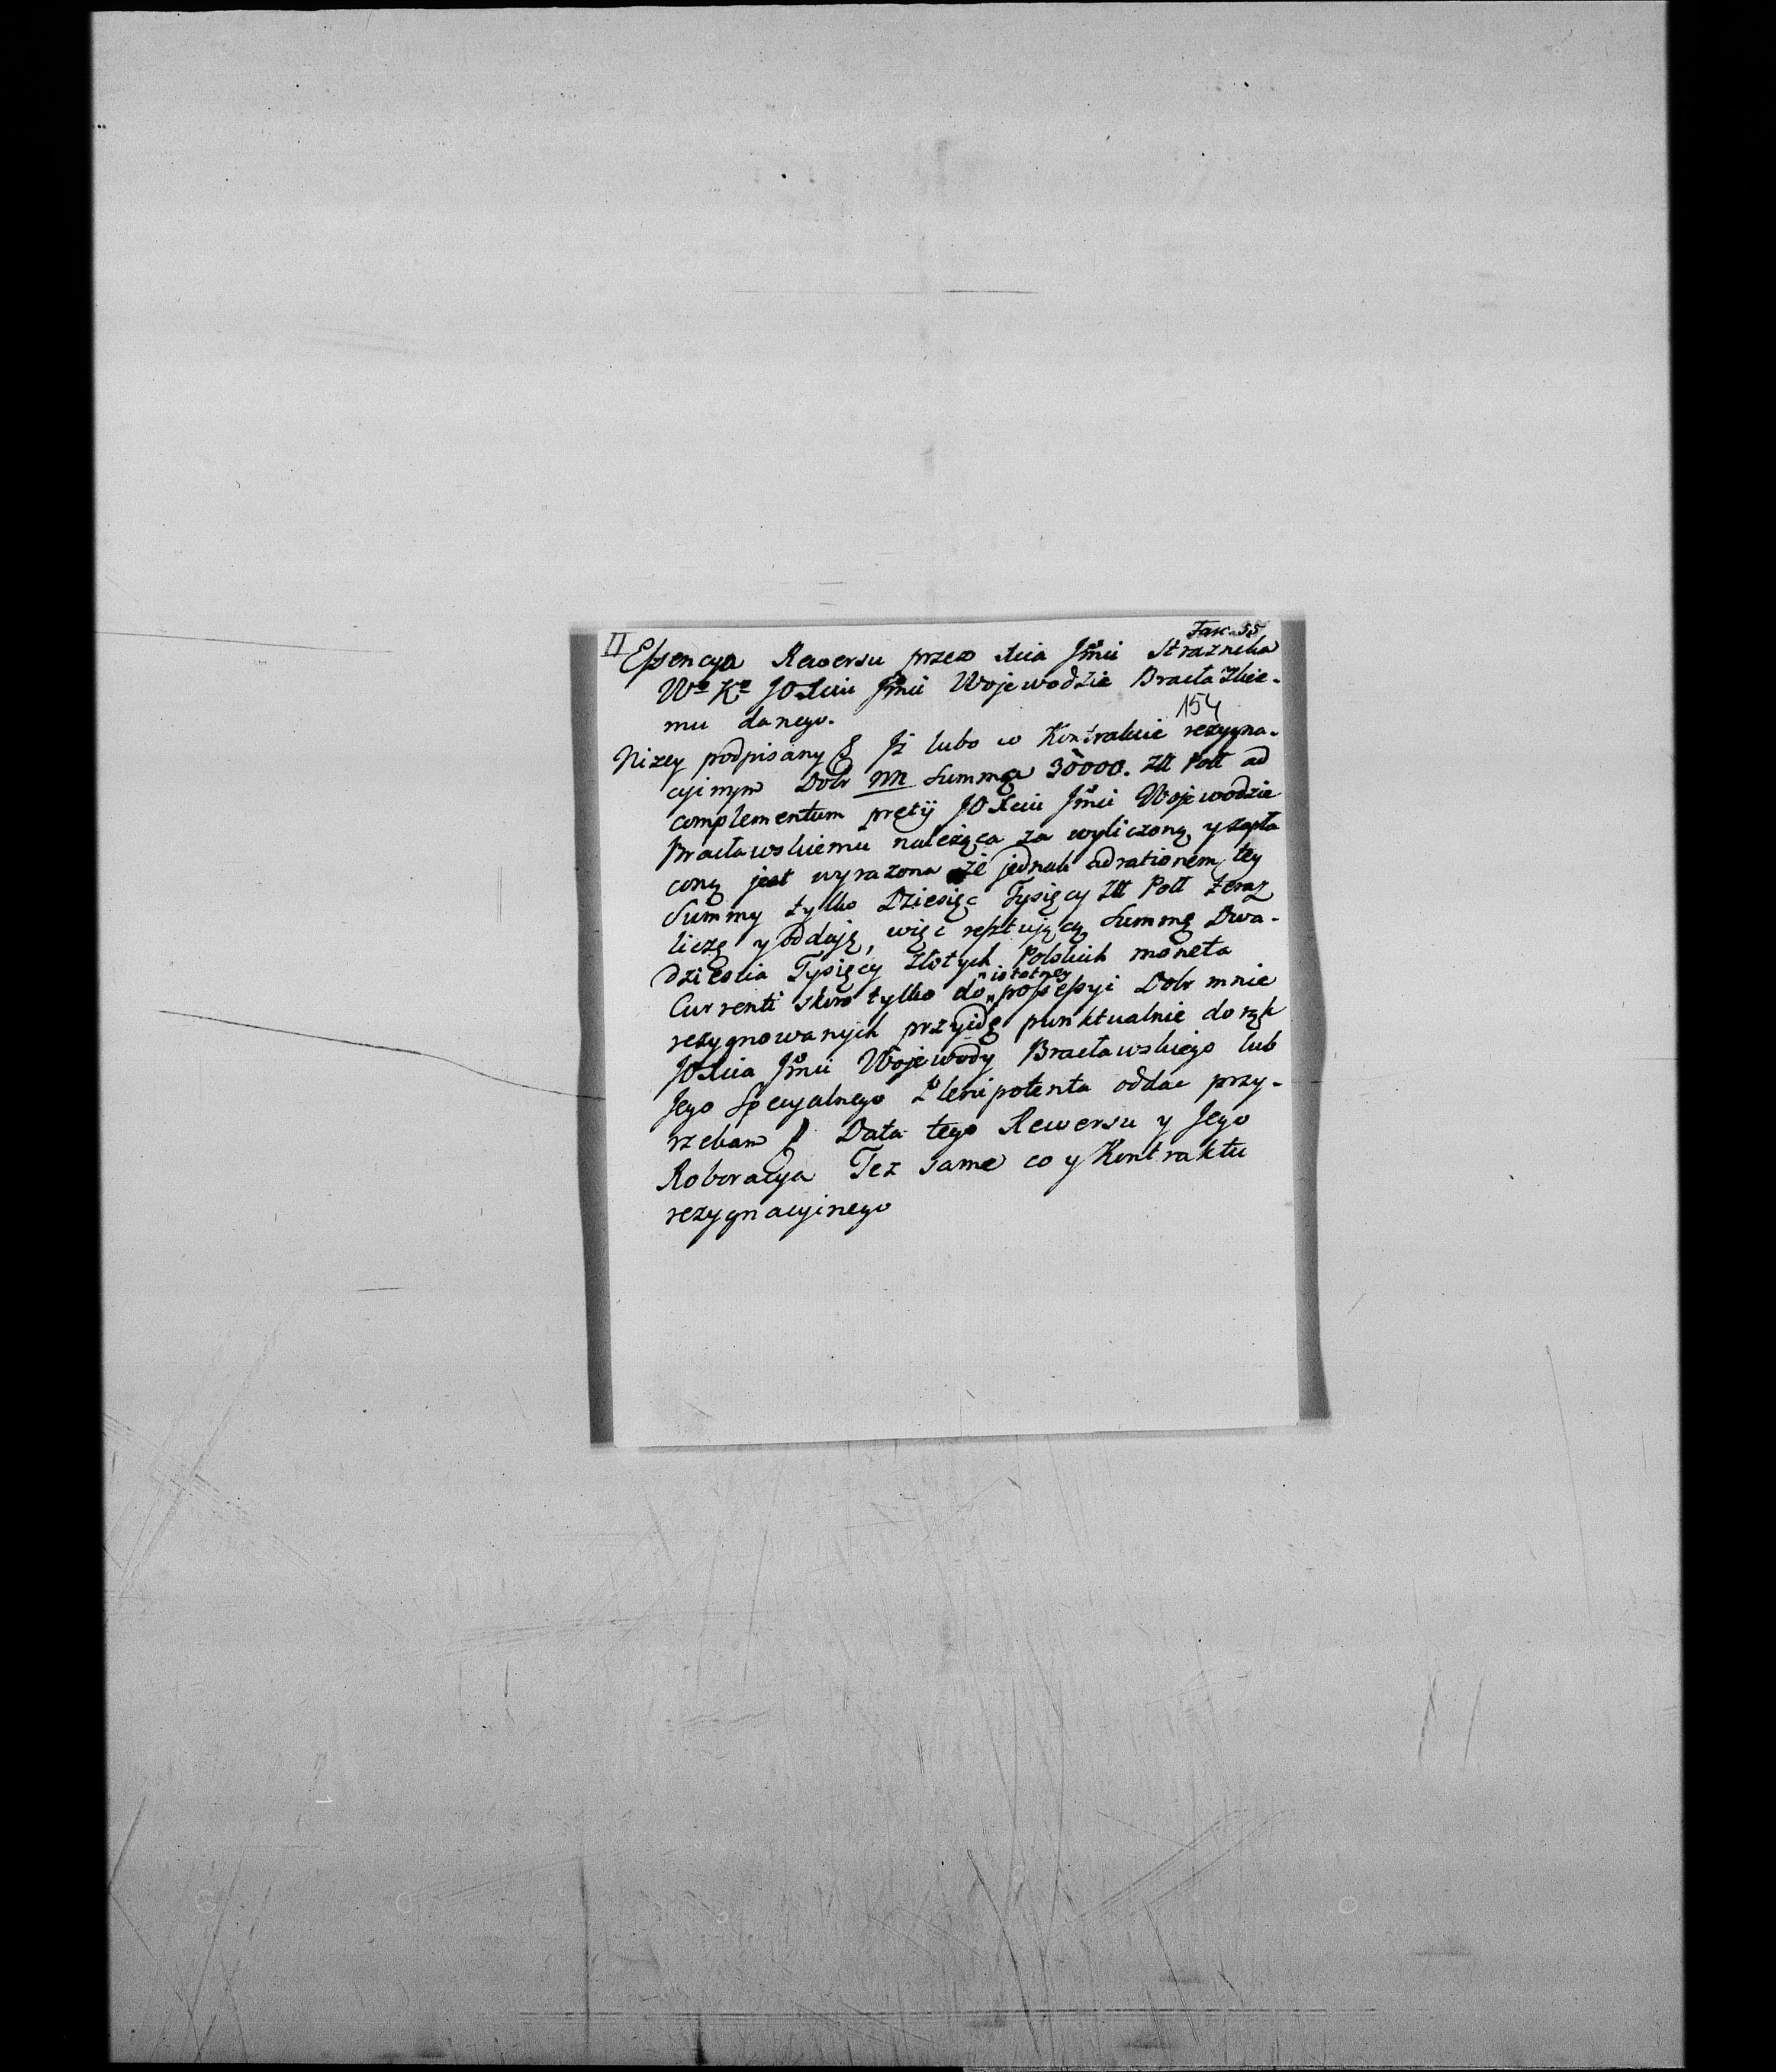 Fasc. 35
II Essencya Rewersu przez Xcia Jmci Straznika
Wo Ko JO Xciu Jmci Wojewodzie Bracławskie-
mu danego.
154
Nizey podpisany Iż lubo w Kontrakcie rezygna-
cyinym Dobr NN Summa 30000. Złł Poll ad
complementum pretij JO Xciu Jmci Wojewodzie
Bracławskiemu należąca za wyliczoną y zapła
coną jest wyrazona że jednak ad rationem tey
Summy tylko Dziesięc Tysięcy Złł Poll teraz
liczę y oddaję, więc resztującą Summę Dwa-
dziescia Tysięcy Złotych Polskich moneta
Currenti skoro tylko do istotney possessyi Dobr mnie
rezygnowanych przyidę punktualnie do rąk
JO Xcia Jmci Wojewody Bracławskiego lub
Jego Specyalnego Plenipotenta oddac przy-
rzekam Data tego Rewersu y Jego
Roboracya Tez same co y Kontraktu
rezygnacyinego